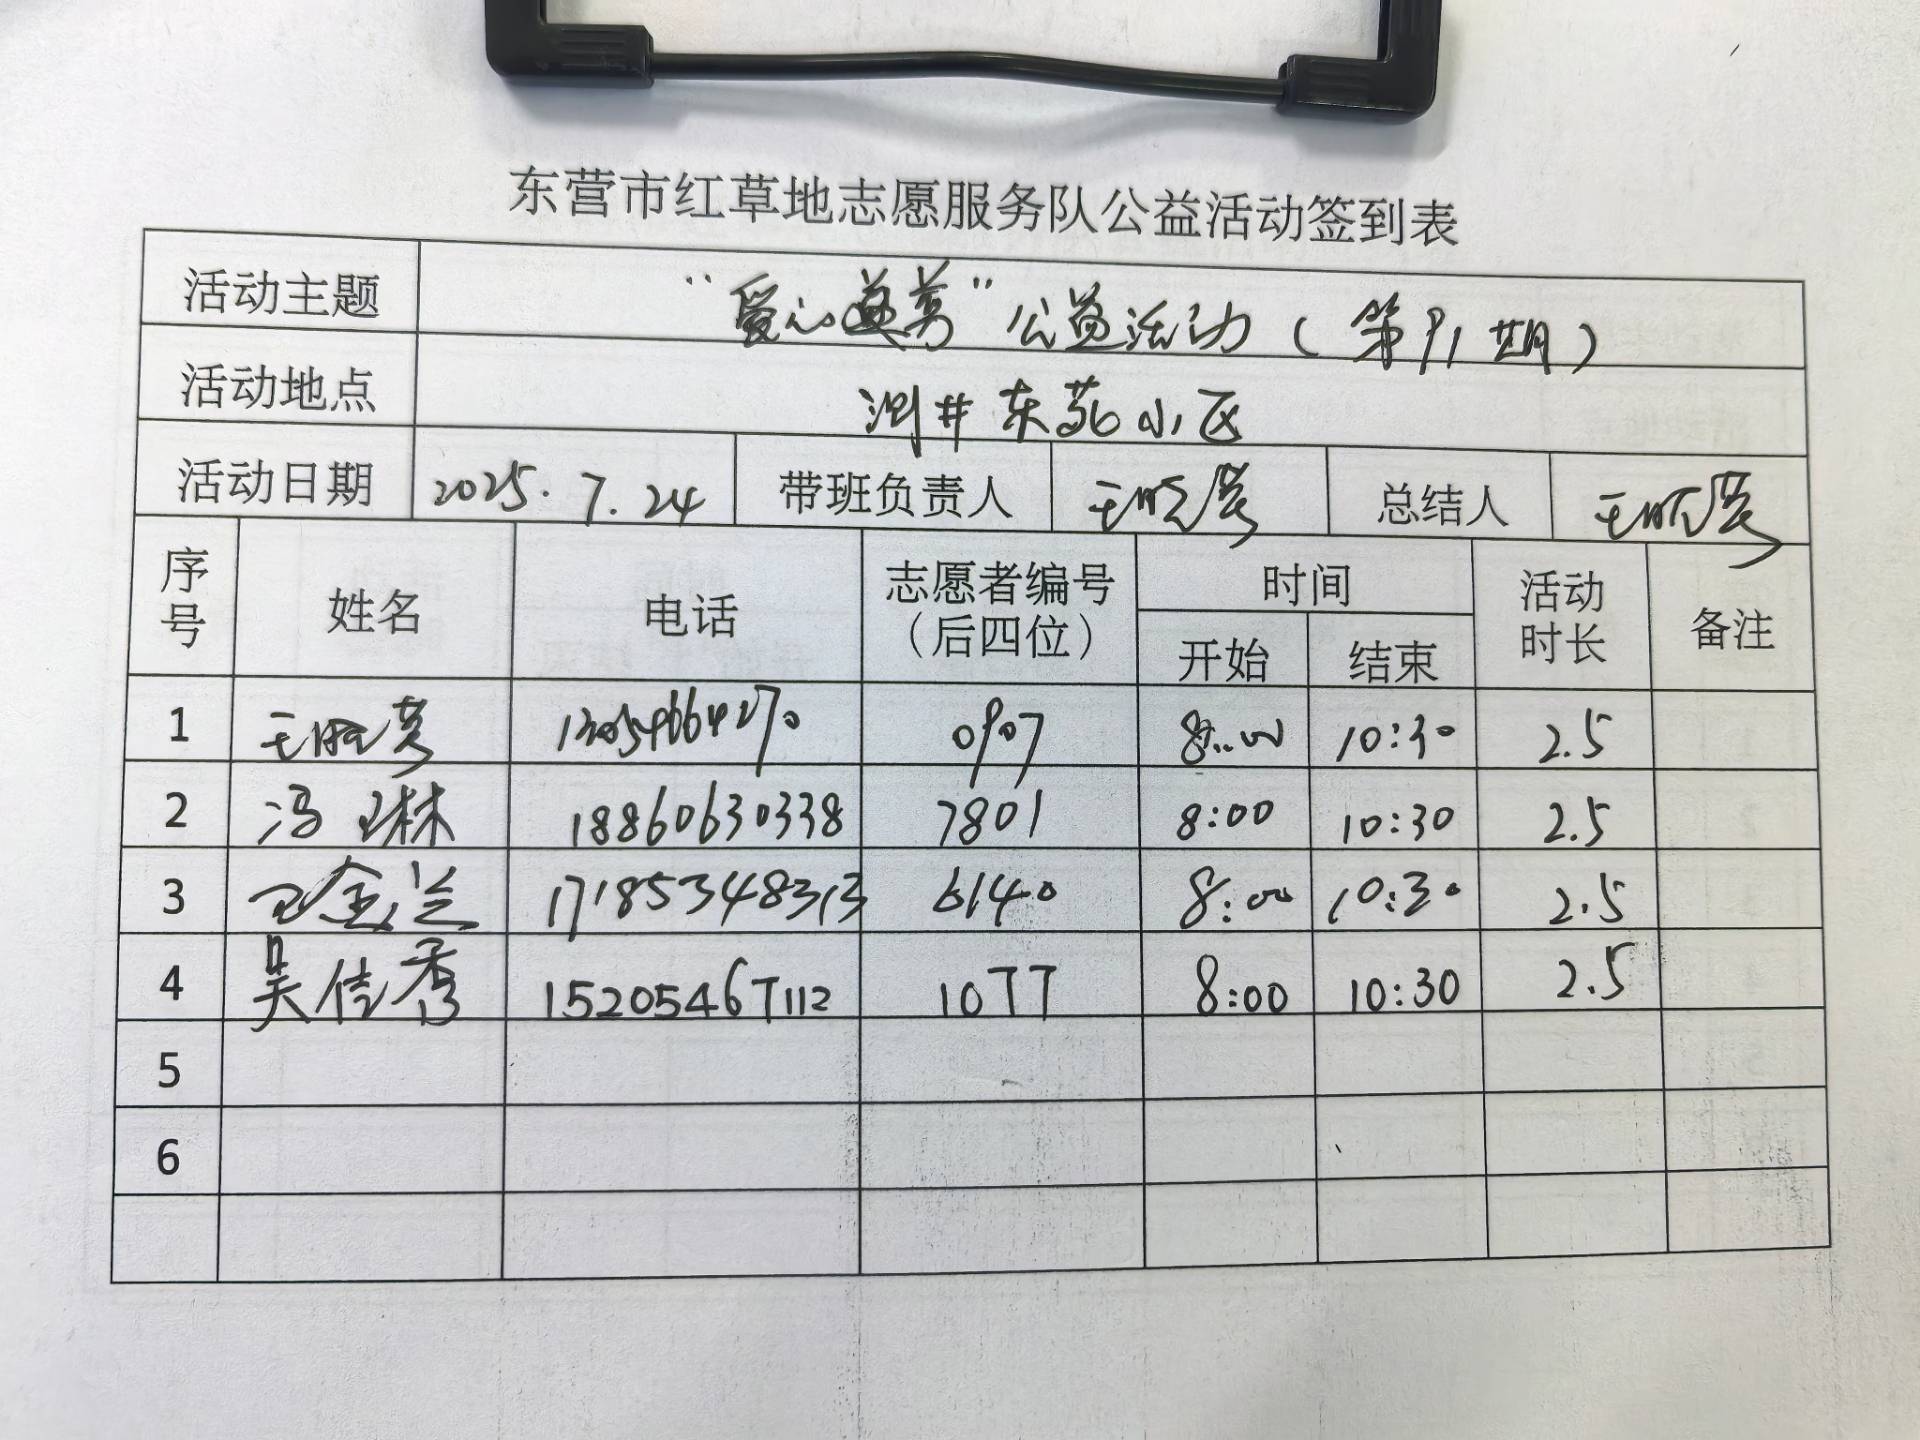 东营市红草地志愿服务队公益活动签到表
活动主题 “爱心義剪”公益活动(第91期)
活动地点 测井东苑小区
活动日期 2025.7.24 带班负责人 王晓英 总结人 王晓英
序号 姓名 电话 志愿者编号(后四位) 时间 活动时长 备注
开始 结束
1 王晓英 13054664270 0907 8:00 10:30 2.5
2 冯琳 18860630338 7801 8:00 10:30 2.5
3 金兰 17185348313 6140 8:00 10:30 2.5
4 吴佳秀 15205467112 1077 8:00 10:30 2.5
5
6